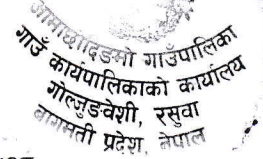 आमाछोदिङमो गाउँपालिका
गाउँ कार्यपालिकाको कार्यालय
गोल्जुङवेशी, रसुवा
बागमती प्रदेश, नेपाल